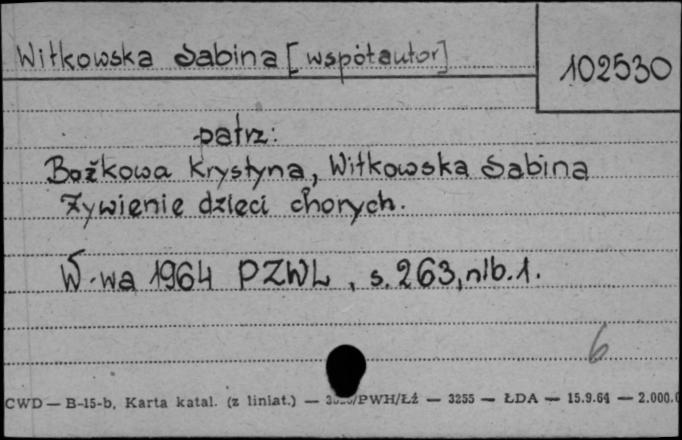 Witkowska Sabina [współautor]
102530
patrz:
Bożkowa Krystyna, Witkowska Sabina
Żywienie dzieci chorych.
W-wa 1964 PZWL, s. 263, nlb. 1.
6
CWD — B-15-b, Karta katal. (z liniat.) — /PWH/Łź — 3255 — ŁDA — 15.9.64 — 2.000.